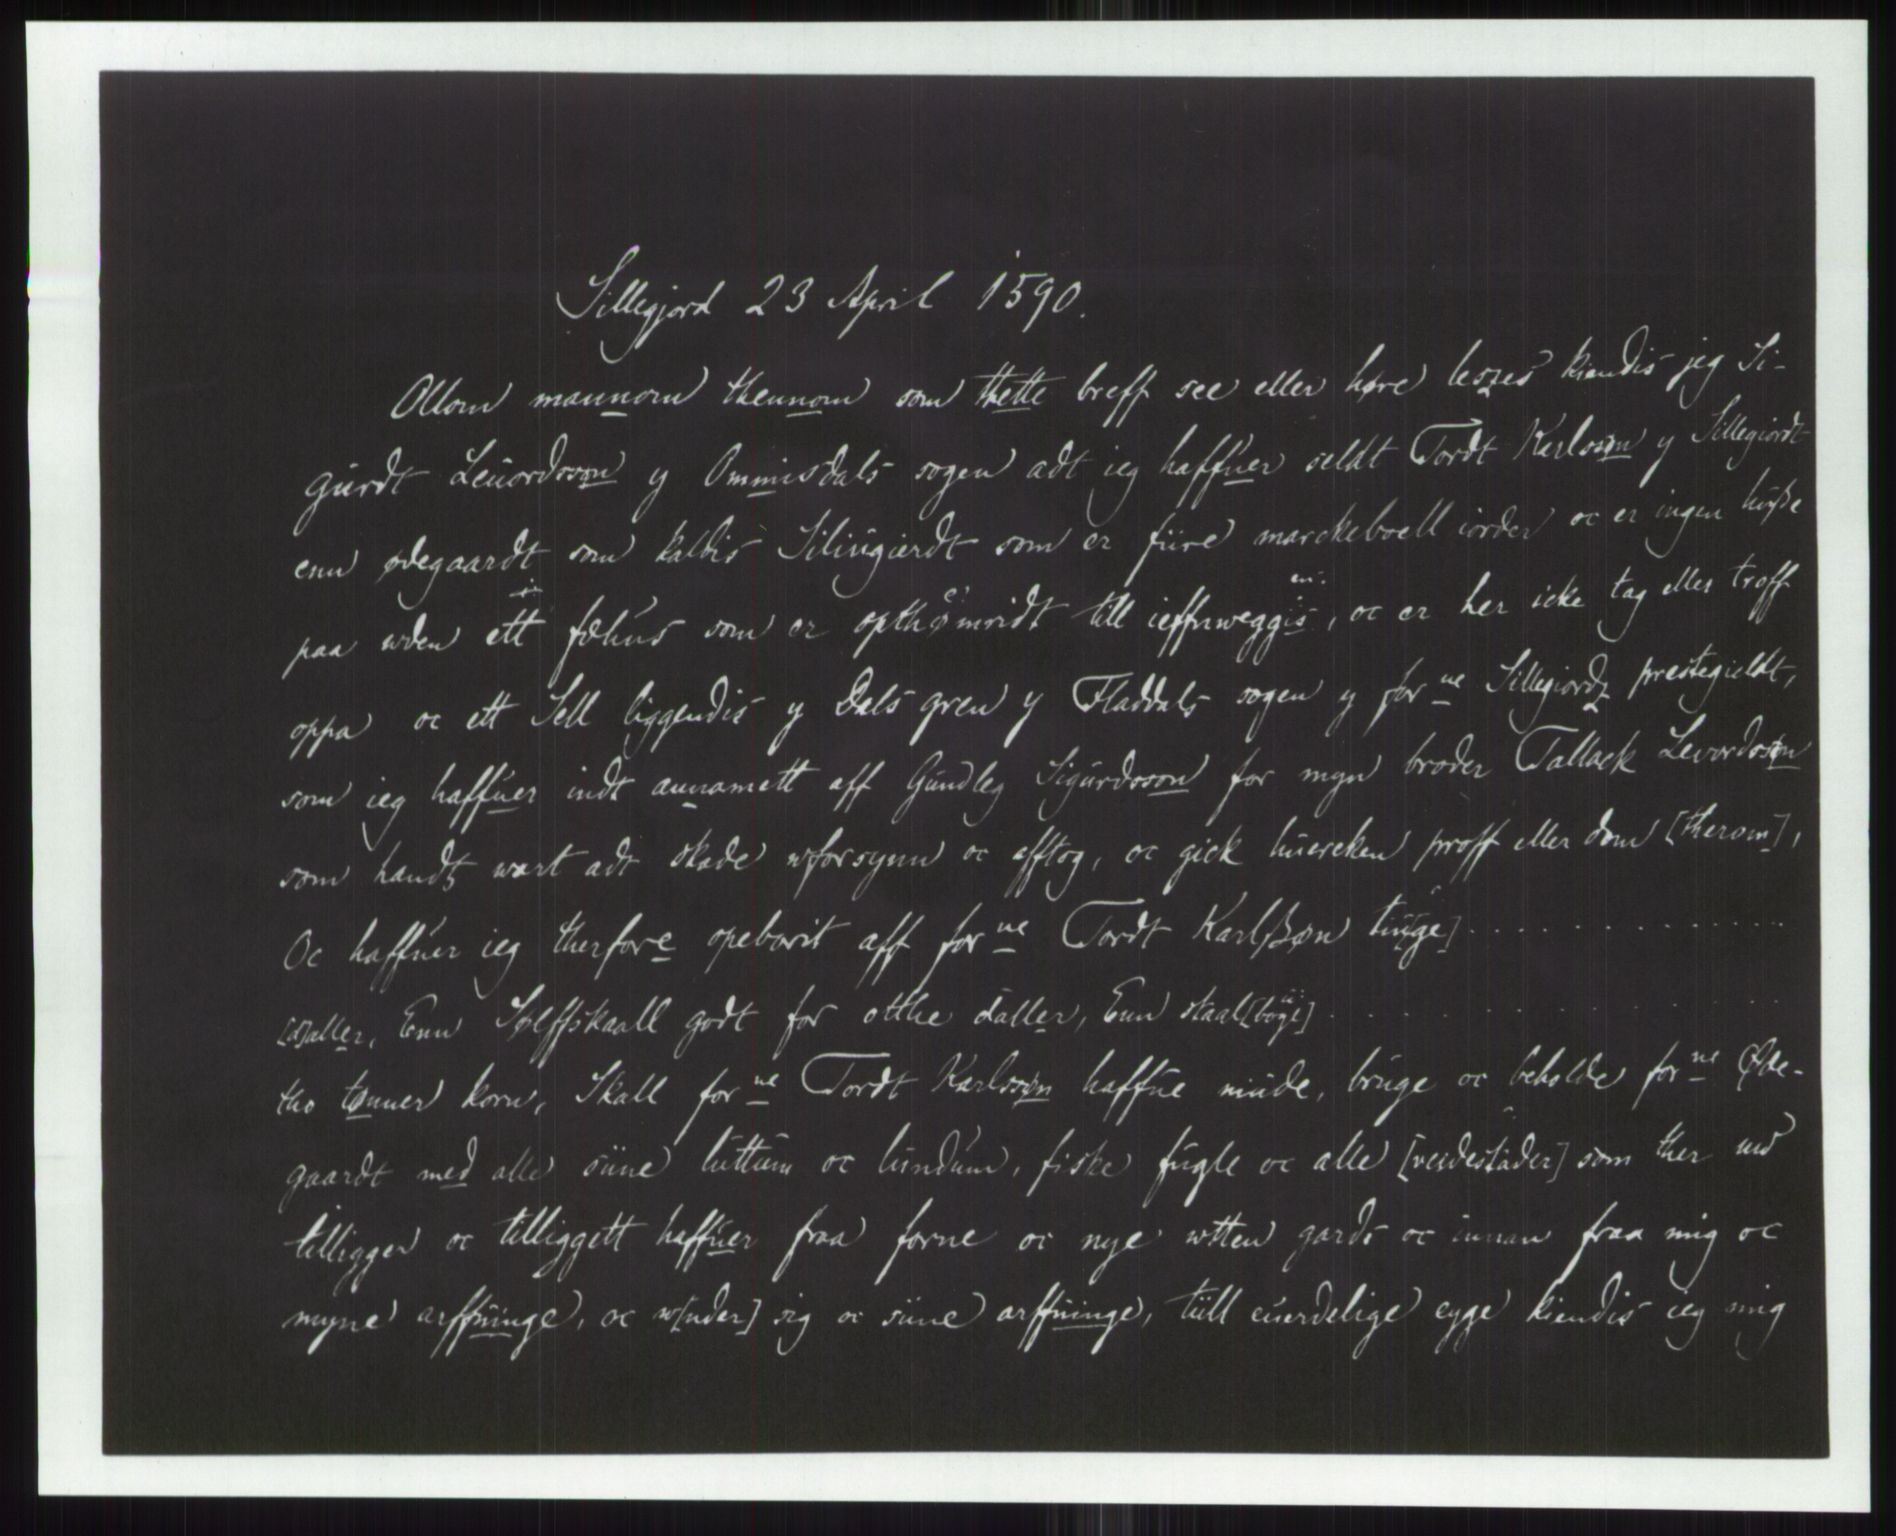 Sillegjord 23 April 1590.
Ollom mannom thennom som thette breff see eller høre leszes kiendis jeg Si-
gurdt Leuordssøn y Ommisdals sogen adt ieg haffuer seldt Tordt Karlsøn y Sillegiordt
enn ødegaardt som kaldis Silingierdt som er fiire marckeboell iorder oc er ingen huße
paa uden ett fæhus som er opthømridt till ieffnweggis, oc er her icke tag eller troff
oppa oc ett Sell liggendis y Dals gren y Fladdals sogen y forne Sillegiordz prestegieldt,
som ieg haffuer indt annamett aff Gundleg Sigurdsson for myn broder Tallack Levordssøn
som handz wart adt skade wforsynn oc afftog, oc gick huercken proff eller dom [therom],
Oc haffuer ieg therfore opeborit aff forne Tordt Karlßøn tiuge] . . . . . . . . . . . . . . .
[d]aller, Enn Sølffskaall godt for otthe daller, Enn skaal[bøge] . . . . . . . . . . .
tho tønner korn, Skall forne Tordt Karlssøn haffue niude, bruge oc beholde forne Øde-
gaardt med alle siine luttum oc lundum, fiske fugle oc alle [veidestader] som ther nid
tilligger oc tilliggett haffuer fraa forne oc nye wtten gards oc innan fraa mig oc
myne arffuinge, oc w[nder] sig oc siine arffuinge, tiill euerdelige eyge kiendis ieg mig